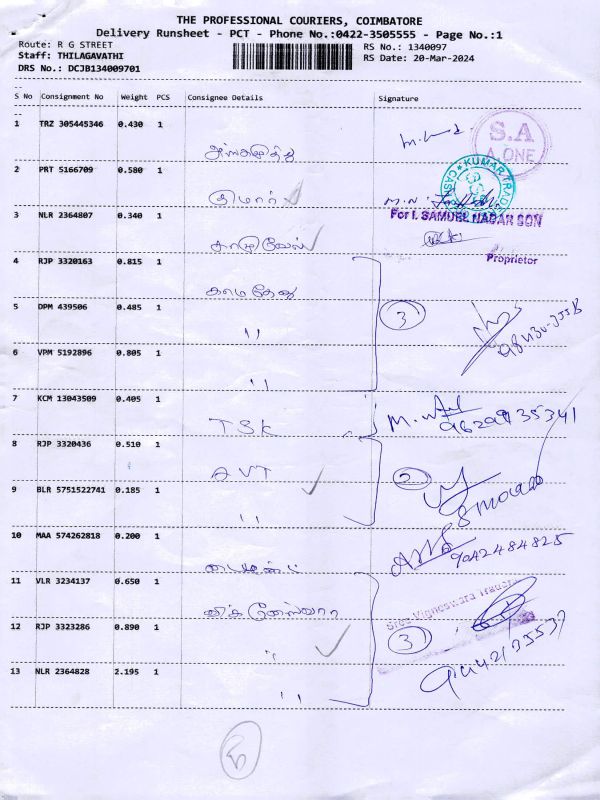 THE PROFESSIONAL COURIERS, COIMBATORE
Delivery Runsheet - PCT - Phone No.:0422-3505555 - Page No.:1
Route: R G STREET
RS No.: 1340097
Staff: THILAGAVATHI
RS Date: 20-Mar-2024
DRS No.: DCJB134009701
S No Consignment No Weight PCS Consignee Details Signature
1 TRZ 305445346 0.430 1
S.A
A.ONE
2 PRT 5166709 0.580 1 குமார்
KUMAR TRADE
3 NLR 2364807 0.340 1
For I. SAMUEL NADAR SON
Proprietor
4 RJP 3320163 0.815 1 காமதேனு
5 DPM 439506 0.485 1 ,, 3
6 VPM 5192896 0.805 1 ,,
7 KCM 13043509 0.405 1 TSK
8 RJP 3320436 0.510 1 AVT
9 BLR 5751522741 0.185 1 ,, 2
10 MAA 574262818 0.200 1
9042484825
11 VLR 3234137 0.650 1 விக்னேஸ்வரா
Sree Vigneswara Traders
12 RJP 3323286 0.890 1 ,, 3
13 NLR 2364828 2.195 1 ,,